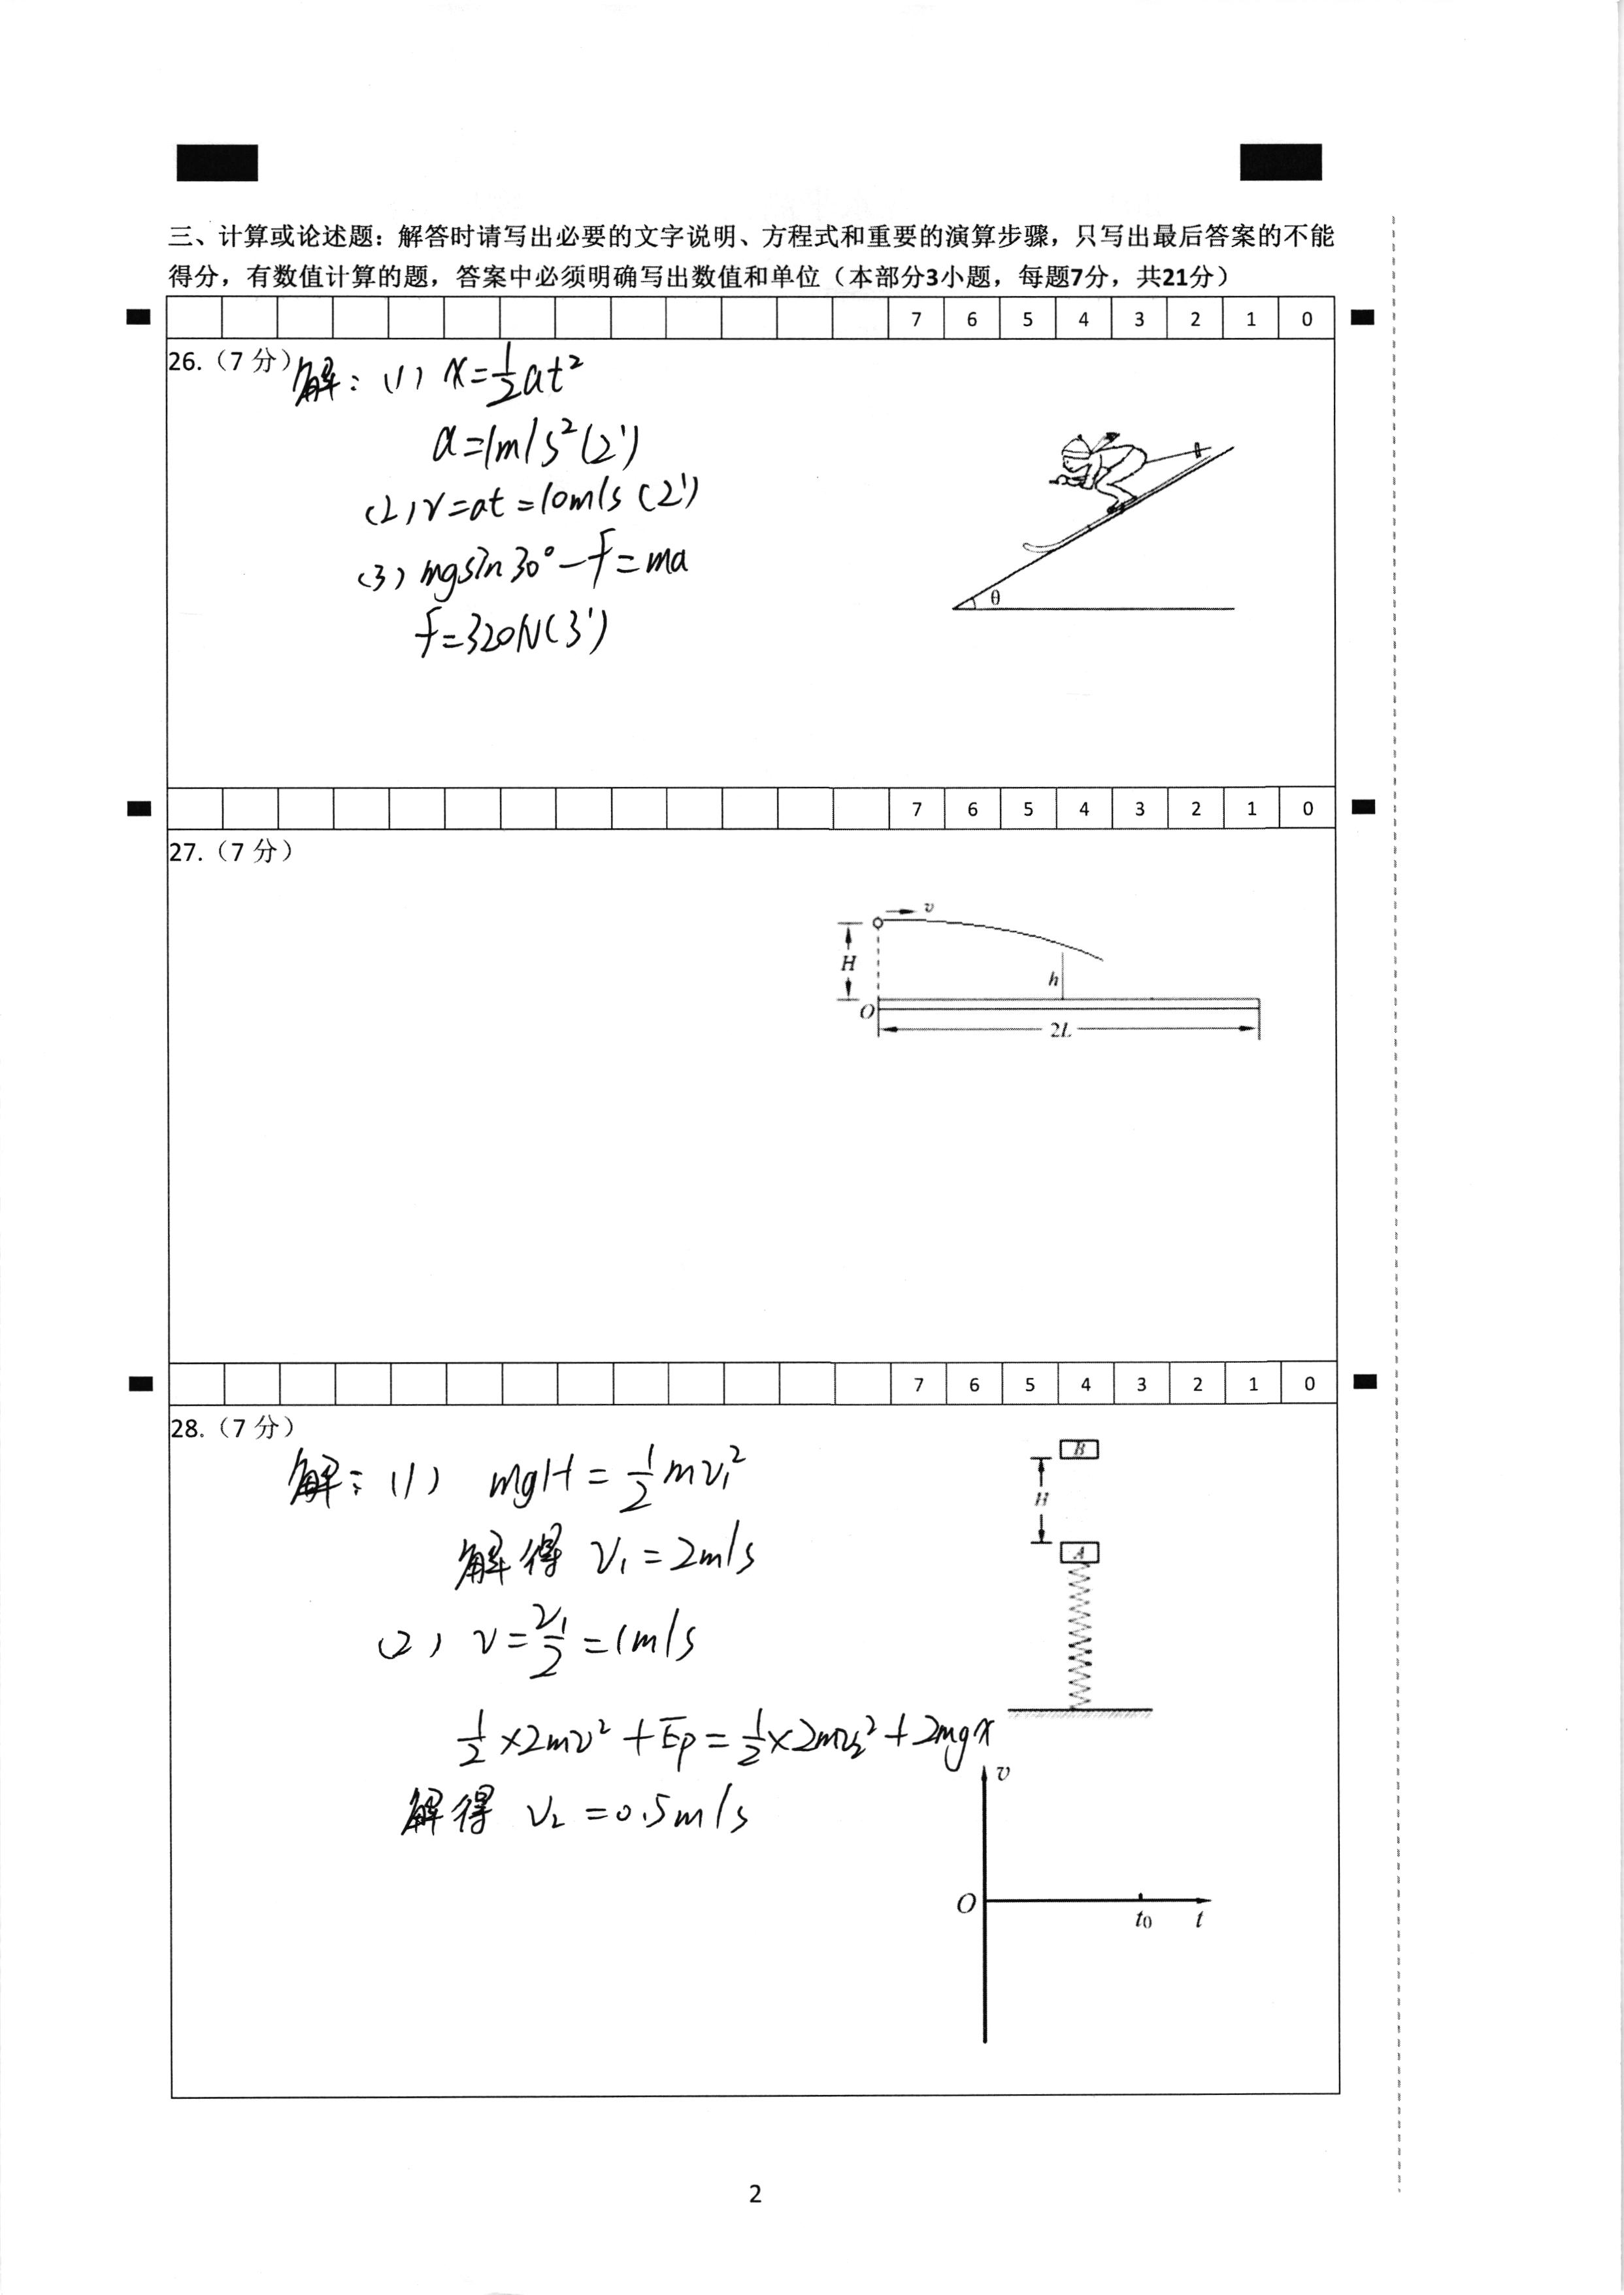 三、计算或论述题：解答时请写出必要的文字说明、方程式和重要的演算步骤，只写出最后答案的不能
得分，有数值计算的题，答案中必须明确写出数值和单位（本部分3小题，每题7分，共21分）
7 6 5 4 3 2 1 0
26.（7 分）
解：(1) x=½at²
a=1m/s²(2')
(2) v=at=10m/s (2')
(3) mgsin30°-f=ma
f=320N(3')
θ
7 6 5 4 3 2 1 0
27.（7 分）
v
H
h
O
2L
7 6 5 4 3 2 1 0
28.（7 分）
解：(1) mgH=½mv₁²
解得 v₁=2m/s
(2) v=v₁/2=1m/s
½×2mv²+Ep=½×2mv₂²+2mgx
解得 v₂=0.5m/s
B
H
A
v
O
t₀ t
2